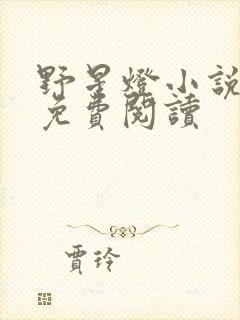 野星燈小說
免費閱讀
賈玲